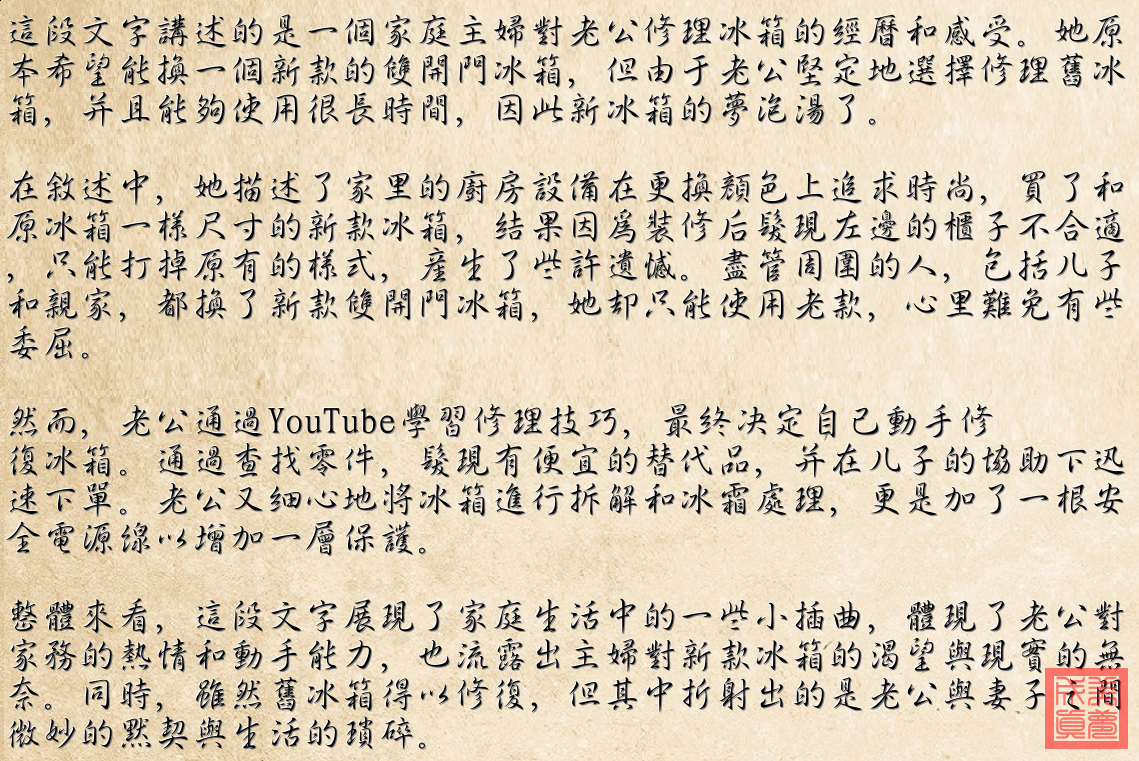 這段文字講述的是一個家庭主婦對老公修理冰箱的經曆和感受。她原
本希望能換一個新款的雙開門冰箱，但由于老公堅定地選擇修理舊冰
箱，并且能夠使用很長時間，因此新冰箱的夢泡湯了。
在敘述中，她描述了家里的廚房設備在更換顏色上追求時尚，買了和
原冰箱一樣尺寸的新款冰箱，結果因爲裝修后髮現左邊的櫃子不合適
，只能打掉原有的樣式，産生了些許遺憾。盡管周圍的人，包括儿子
和親家，都換了新款雙開門冰箱，她却只能使用老款，心里難免有些
委屈。
然而，老公通過YouTube學習修理技巧，最終决定自己動手修
復冰箱。通過查找零件，髮現有便宜的替代品，并在儿子的協助下迅
速下單。老公又細心地將冰箱進行拆解和冰霜處理，更是加了一根安
全電源線以增加一層保護。
整體來看，這段文字展現了家庭生活中的一些小插曲，體現了老公對
家務的熱情和動手能力，也流露出主婦對新款冰箱的渴望與現實的無
奈。同時，雖然舊冰箱得以修復，但其中折射出的是老公與妻子之間
微妙的默契與生活的瑣碎。